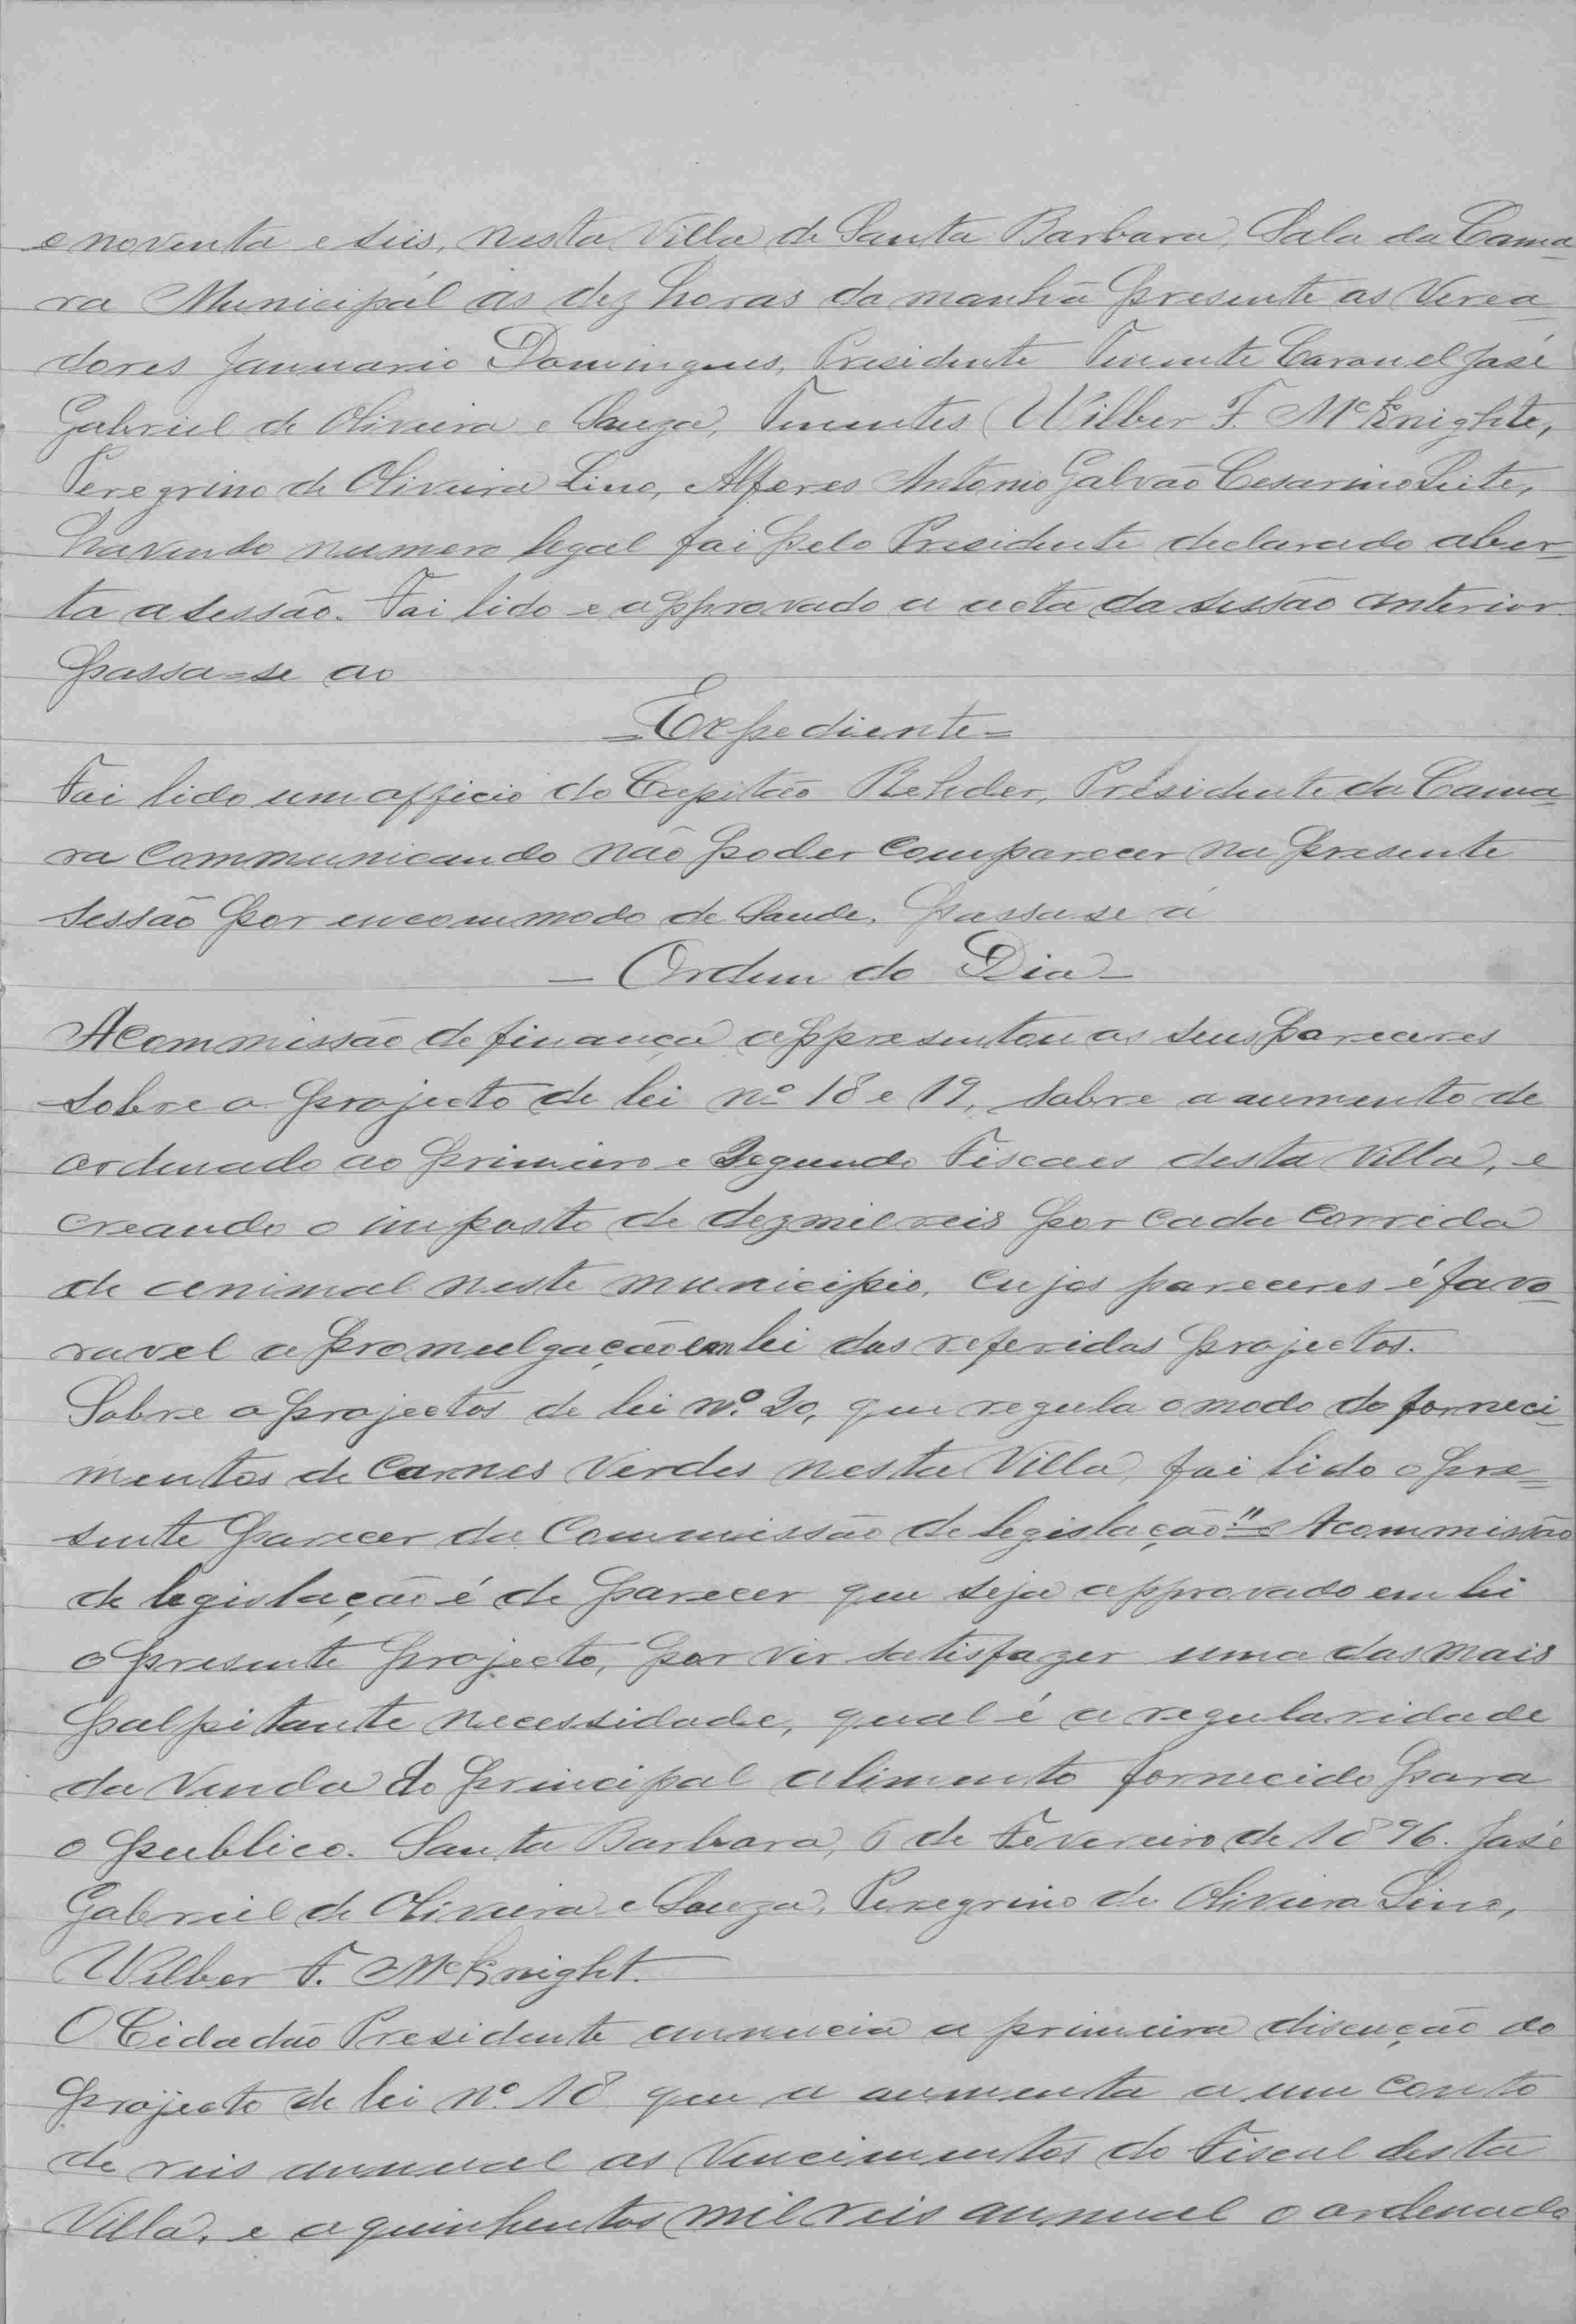 e noventa e seis, nesta Villa de Santa Barbara, Sala da Cama-
ra Municipal as dez horas da manhã presente os Verea-
dores Januario Domingues, Presidente Tenente Coronel José
Gabriel de Oliveira e Souza, Tenentes Wilber F. McKnighte,
Peregrino de Oliveira Lino, Alferes Antonio Galvão Cesarino Leite,
havendo numero legal foi pelo Presidente declarado aber=
ta a sessão. Foi lido e approvado a acta da sessão anterior.
passa=se ao
=Expediente=
Foi lido um officio do Capitão Rehder, Presidente da Cama-
ra communicando não poder comparecer na presente
Sessão por encommodo de Saude. passa se á
- Ordem do Dia -
A commissão de finança appresentou os seus pareceres
sobre o projecto de lei nº 18 e 19, sobre o aumento de
ordenado ao primeiro e Segundo Fiscaes desta Villa, e
creando o imposto de dez mil reis por cada corrida
de animal neste municipio, cujos pareceres é favo-
ravel a promulgação em lei dos referidos projectos.
Sobre o projectos de lei nº. 20, que regula o modo do forneci-
mentos de Carnes Verdes nesta Villa, foi lido o pre=
sente parecer da Commissão de legislação "= A commissão
de legislação é de parecer que seja approvado em lei
o presente projecto, por vir satisfazer uma das mais
palpitante necessidade, qual é a regularidade
da Venda do principal alimento fornecido para
o publico. Santa Barbara, 6 de Fevereiro de 1896. José
Gabriel de Oliveira e Souza, Peregrino de Oliveira Lino,
Wilber F. McKnight.
O Cidadão Presidente annuncia a primeira discução do
projecto de lei nº. 18 que a aumenta a um conto
de reis annual os Vencimentos do Fiscal desta
Villa, e a quinhentos mil reis annual o ordenado